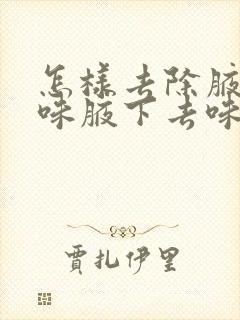 怎样去除腋
味腋下去味
贾扎伊里